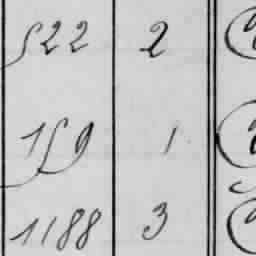 522 2
159 1
1188 3